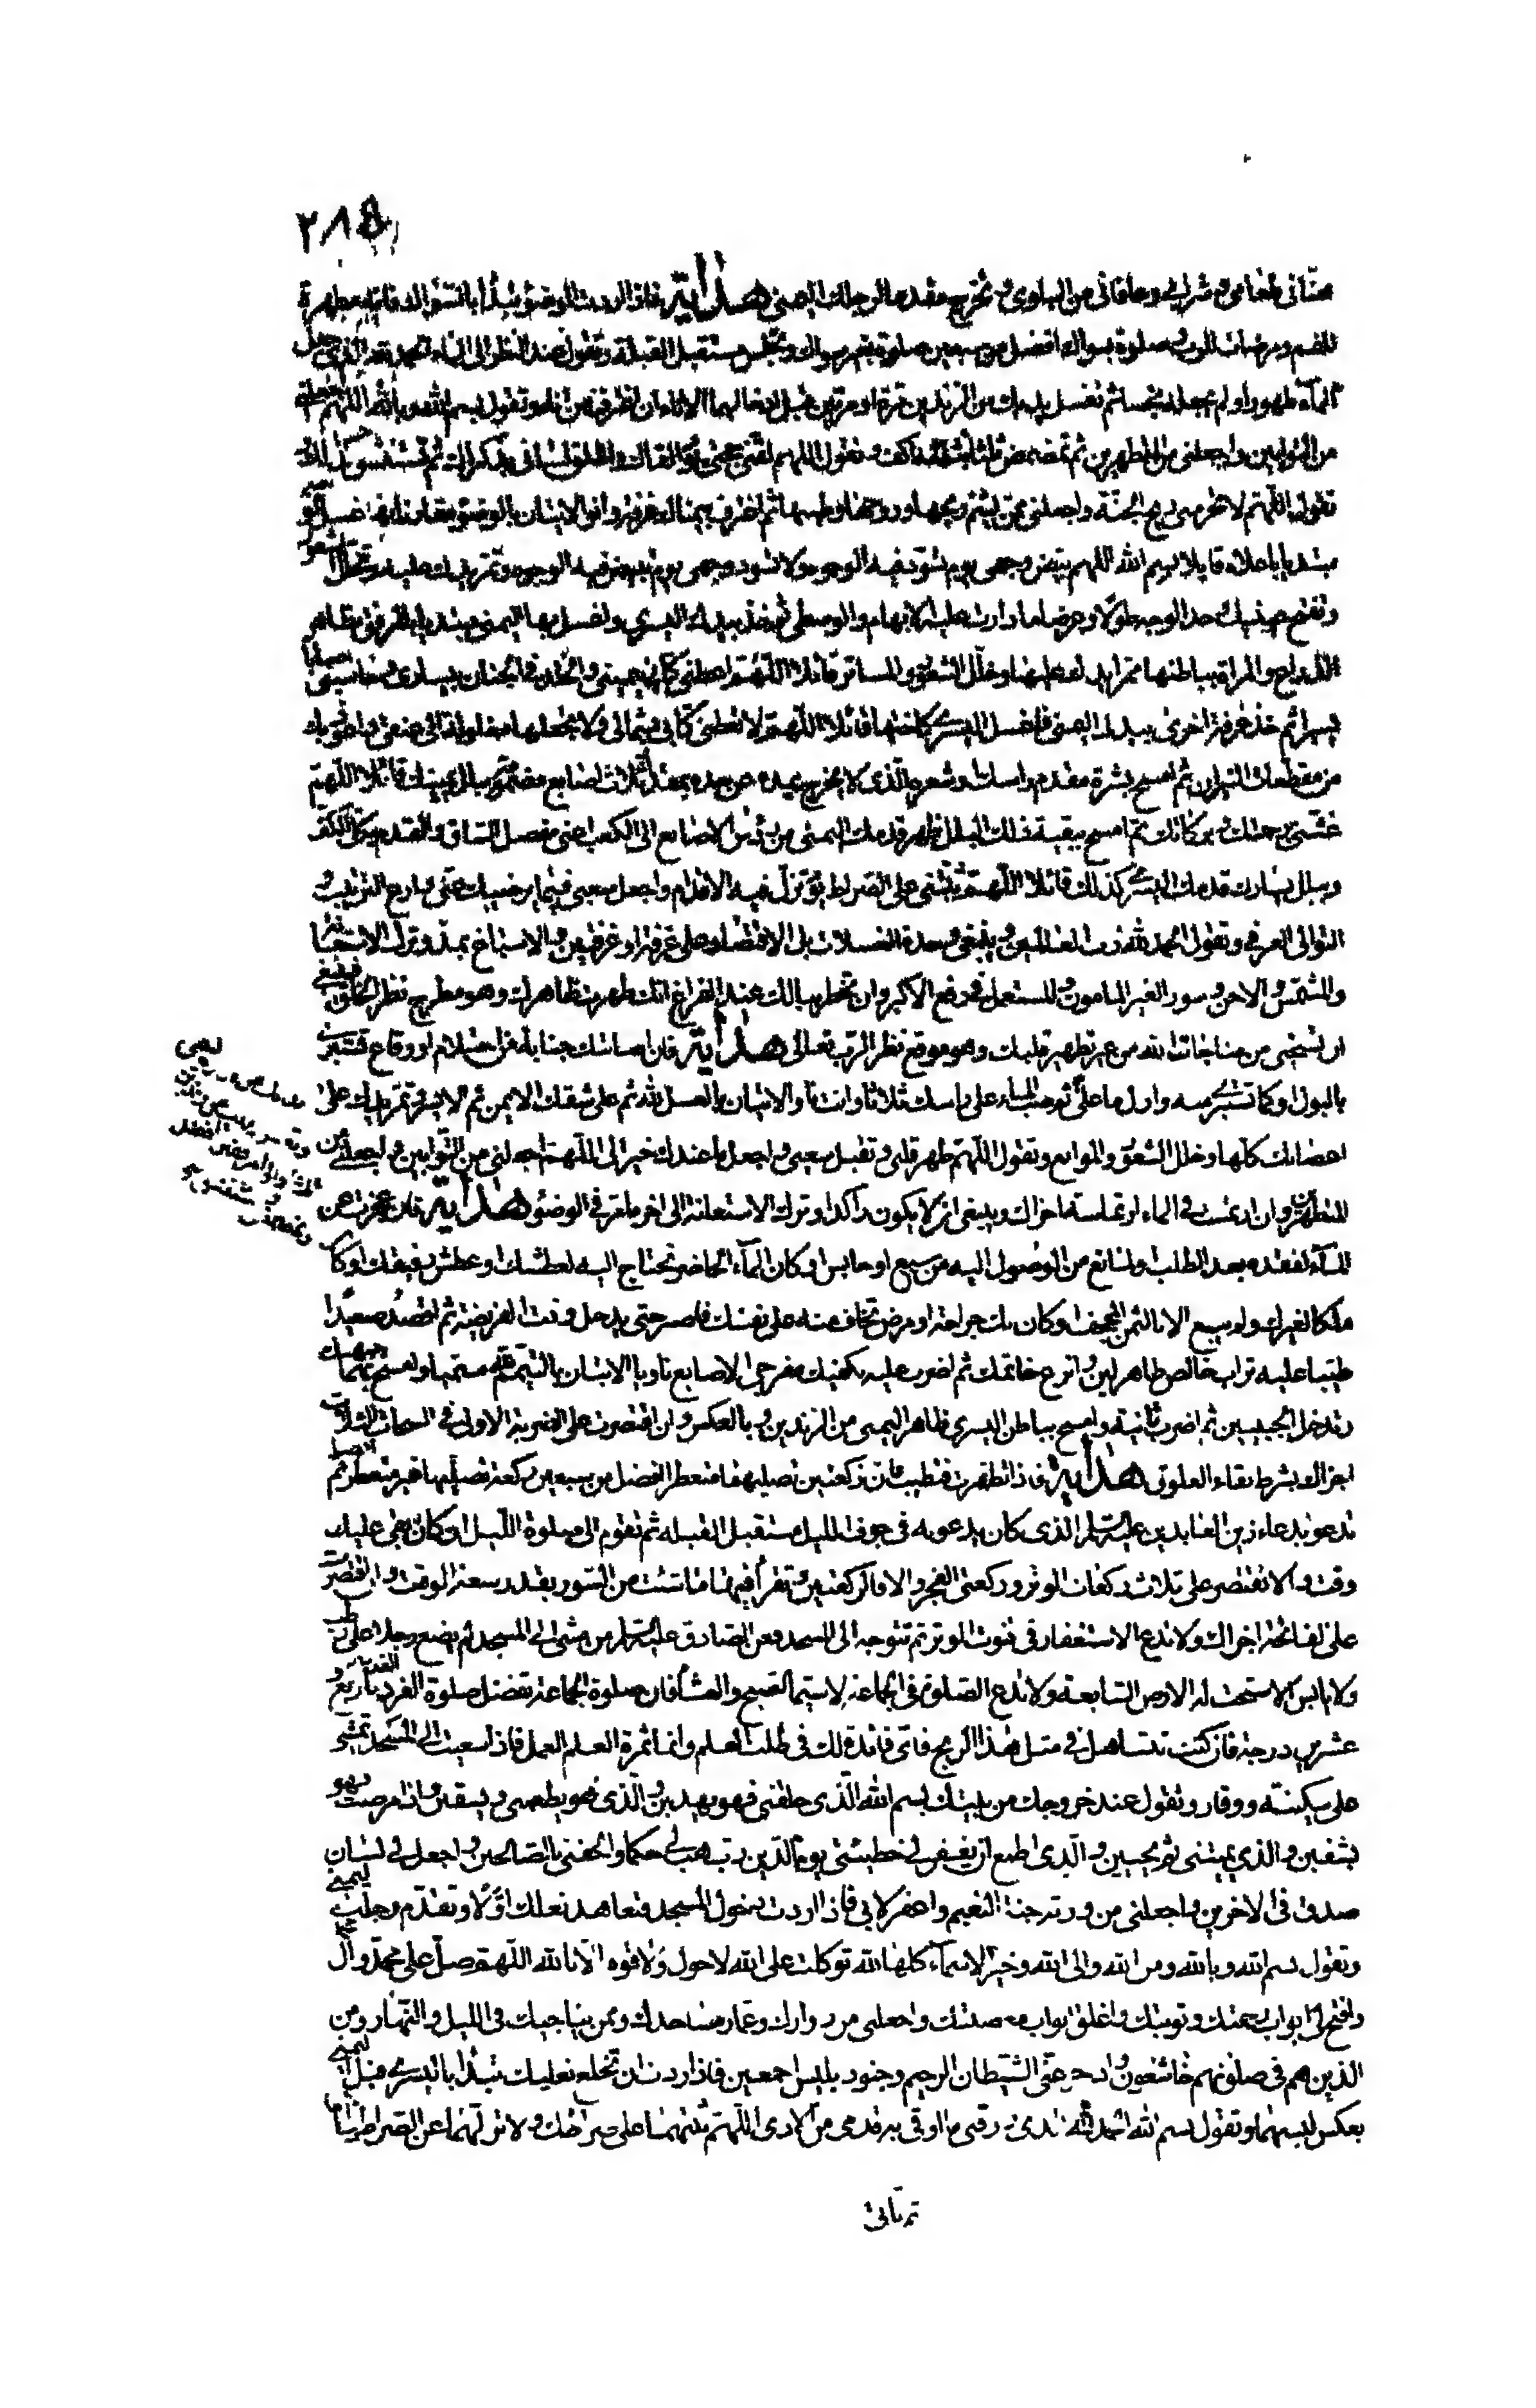 ٢٨٥
هنّأني طعامي وشرابي وعافاني من البلوى وتخرج مقدما لرجلك اليمنى هداية فاذا اردت الوضوء فتبدأ بالسواك فانه مطهرة
للفم ومرضات للرب وصلوة بسواك افضل من سبعين صلوة بغير سواك وتجلس مستقبل القبلة وتقول عند النظر الى الماء الحمد لله الذي جعل
الماء طهورا ولم يجعله نجسا ثم تغسل يديك من الزندين مرة او مرتين قبل ادخالهما الاناء ان تغترف من اناء وتقول بسم الله وبالله اللهم اجعلني
من التوابين واجعلني من المتطهرين ثم تمضمض ثلثا بثلث اكف وتقول اللهم لقني حجتي يوم القاك واطلق لساني بذكراك ثم تستنشق
تقول اللهم لا تحرمني ريح الجنة واجعلني ممن يشم ريحها وروحها وطيبها ثم اغترف بيمناك غرفة وانو الاتيان بالوضوء مقارنا بها غسل الوجه
مبتديا باعلاه قايلا بسم الله اللهم بيّض وجهي يوم تسوّد فيه الوجوه ولا تسود وجهي يوم تبيض فيه الوجوه وتمر يدك عليه وتخلل الشعور
وتفتح عينيك حد الوجه طولا وعرضا ما دارت عليه الابهام والوسطى ثم خذ بيدك اليسرى واغسل بها اليمنى مبتديا بالمرفق وظاهر
الذراع والمراة بباطنها تمر يدك عليها وتخلل الشعور والساتر قائلا اللهم اعطني كتابي بيميني والخلد في الجنان بيساري وحاسبني حسابا
يسيرا ثم خذ غرفة اخرى بيدك اليمنى فاغسل اليسرى كاختها قائلا اللهم لا تعطني كتابي بشمالي ولا تجعلها مغلولة الى عنقي واعوذ بك
من مقطعات النيران ثم امسح بشرة مقدم راسك او شعره الذي لا يخرج بمده عن حده بمقدار ثلاث اصابع مضمومة ببلل يمينك قائلا اللهم
غشني رحمتك وبركاتك ثم امسح ببقية ذلك البلل ظهر قدمك اليمنى من رؤس الاصابع الى الكعب اعني مفصل الساق والقدم بكل الكف
وببلل يسارك قدمك اليسرى كذلك قائلا اللهم ثبتني على الصراط يوم تزل فيه الاقدام واجعل سعيي فيما يرضيك عني وراع الترتيب و
التوالي العرفي وتقول الحمد لله رب العالمين وينبغي وحدة الغسلات بل الاقتصار على غرفة او غرفتين والاسباغ بمد وترك الاستعانة
والمشمس والاجن وسور الغير المامون والمستعمل في رفع الاكبر وان تخطر ببالك عند الفراغ انك طهرت ظاهرك وهو مطرح نظر الخلق فينبغي
ان تستحيي من مناجات الله من غير تطهير قلبك وهو موقع نظر الرب تعالى هداية فان اصابتك جنابة عن احتلام او وقاع فتستبرئ
بالبول او كما تستبرئ منه واول ما على ثم صب الماء على راسك ثلاثا وانت ناو الاتيان بالغسل لله ثم على شقك الايمن ثم الايسر وتمر يدك على
اعضائك كلها وخلل الشعور والموانع وتقول اللهم طهر قلبي وتقبل سعيي واجعل ما عندك خيرا لي اللهم اجعلني من التوابين واجعلني من
المتطهرين وان ارتمست في الماء ارتماسة اجزاك وينبغي ان لا يكون راكدا وترك الاستعانة الى اخر ما مر في الوضوء هداية فان عجزت عن
الماء لفقده بعد الطلب او لمانع من الوصول اليه من سبع او حابس او كان الماء الحاضر تحتاج اليه لعطشك او عطش رفيقك او كان
ملكا لغيرك ولم يبع الا بالثمن المجحف او كان بك جراحة او مرض تخاف منه على نفسك فاصبر حتى يدخل وقت الفريضة ثم اقصد صعيدا
طيبا عليه تراب خالص طاهر لين وانزع خاتمك ثم اضرب عليه بكفيك مفرجي الاصابع ناويا الاتيان بالتيمم لله مسميا وامسح بهما جبهتك
وتدخل الجبينين ثم اضرب ثانية وامسح بباطن اليسرى ظاهر اليمنى من الزندين وبالعكس وان اقتصرت على الضربة الاولى في المسحات الثلاث
اجزاك بشرط بقاء العلوق هداية فاذا تطهرت فتطيب فان ركعتين تصليهما متعطرا افضل من سبعين ركعة تصليها غير متعطر ثم
تدعو بدعاء زين العابدين عليه السلام الذي كان يدعو به في جوف الليل مستقبل القبله ثم تقوم الى صلوة الليل ان كان بقي عليك
وقت والا تقتصر على ثلاث ركعات الوتر وركعتي الفجر والا فالركعتين وتقرأ فيهما ما شئت من السور بقدر سعة الوقت وان اقتصرت
على الفاتحة اجزاك ولا تدع الاستغفار في قنوت الوتر ثم تتوجه الى المسجد فعن الصادق عليه السلام من مشى الى المسجد لم يضع رجلا على رطب
ولا يابس الا سبحت له الارض السابعة ولا تدع الصلوة في الجماعة لا سيما الصبح والعشا فان صلوة الجماعة تفضل صلوة الفرد باربع و
عشرين درجة فان كنت تتساهل في مثل هذا الربح فاي فائدة لك في طلب العلم وانما ثمرة العلم العمل فاذا سعيت الى المسجد تمشي
على سكينة ووقار وتقول عند خروجك من بيتك بسم الله الذي خلقني فهو يهدين والذي هو يطعمني ويسقين واذا مرضت فهو
يشفين والذي يميتني ثم يحيين والذي اطمع ان يغفر لي خطيئتي يوم الدين رب هب لي حكما والحقني بالصالحين واجعل لي لسان
صدق في الاخرين واجعلني من ورثة جنة النعيم واغفر لابي فاذا اردت دخول المسجد فتعاهد نعلك اولا وتقدم رجلك اليمنى
وتقول بسم الله وبالله ومن الله والى الله وخير الاسماء كلها لله توكلت على الله لا حول ولا قوة الا بالله اللهم صل على محمد وآل محمد
وافتح لي ابواب رحمتك وتوبتك واغلق ابواب معصيتك واجعلني من زوارك وعمار مساجدك وممن يناجيك في الليل والنهار ومن
الذين هم في صلوتهم خاشعون وادحر عني الشيطان الرجيم وجنود ابليس اجمعين فاذا اردت ان تخلع نعليك تبتدأ باليسرى قبل اليمنى
بعكس لبسهما وتقول بسم الله الحمد لله الذي رزقني ما اوقي به قدمي من الاذى اللهم ثبتهما على صراطك ولا تزلهما عن الصراط